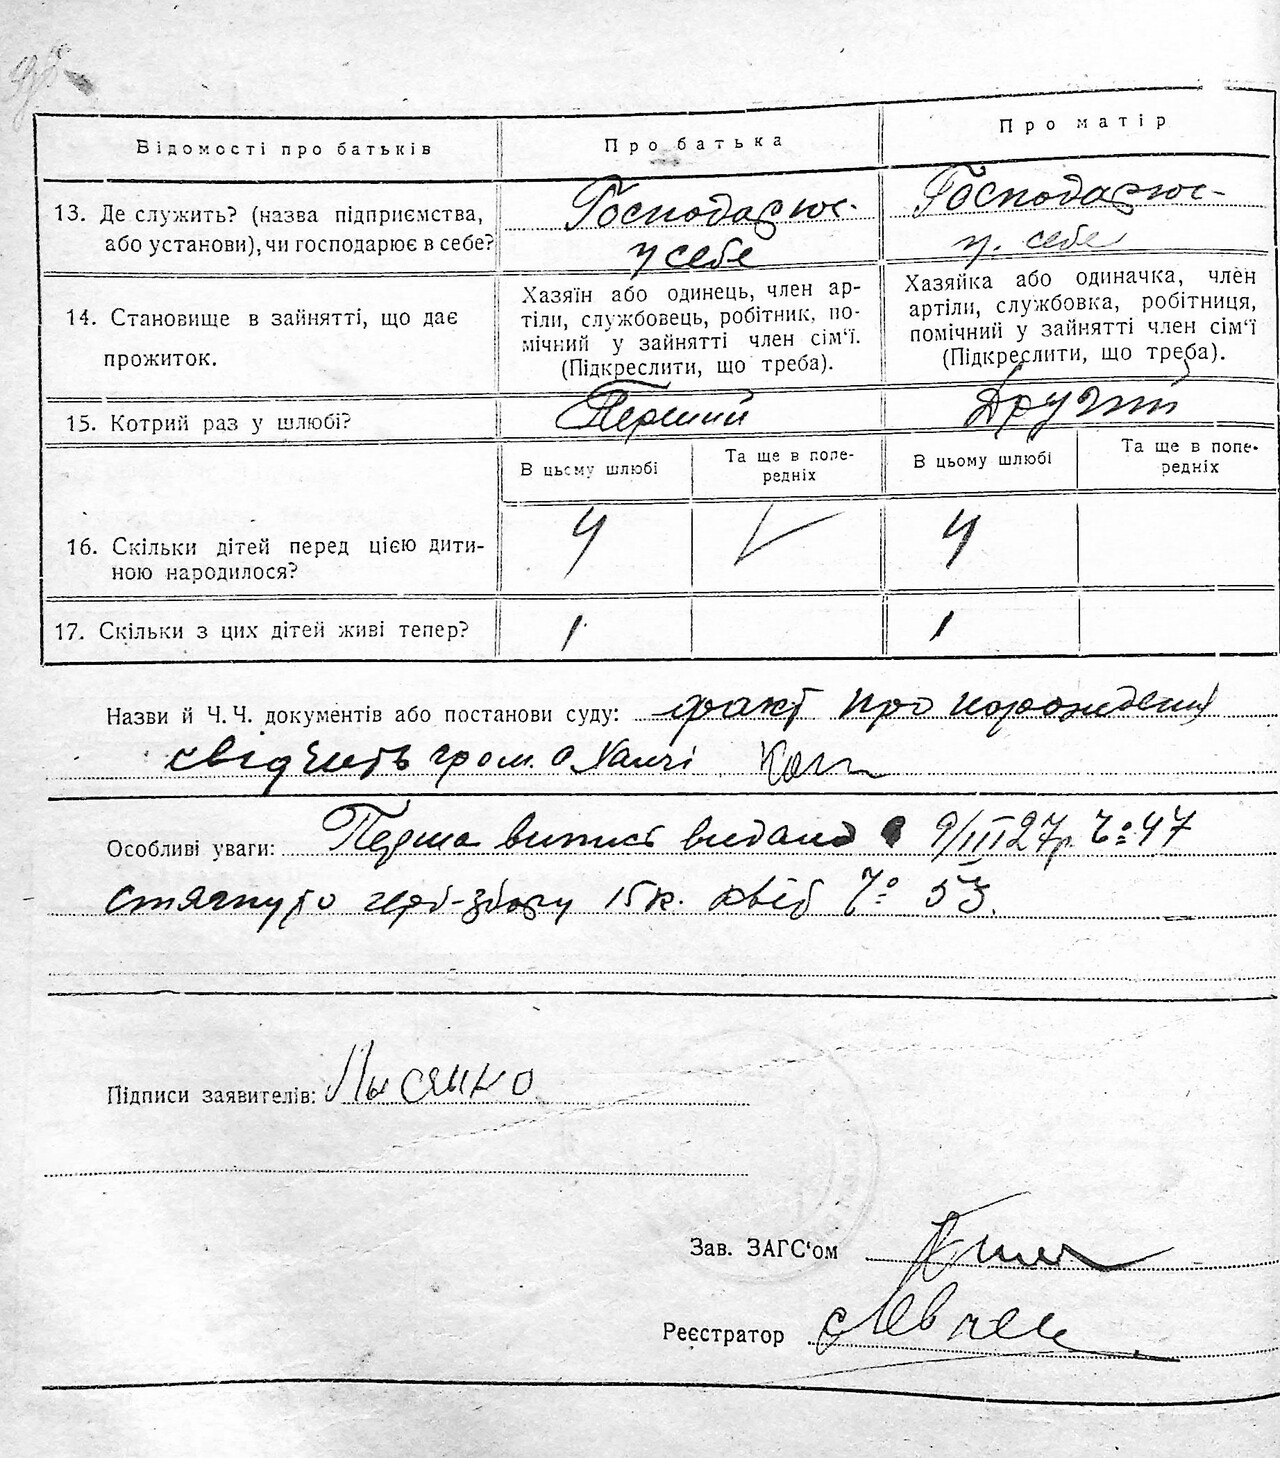 Відомості про батьків
Про батька
Про матір
13. Де служить? (назва підприємства,
або установи), чи господарює в себе?
Господарює
у себе
Господарює
у себе
14. Становище в зайнятті, що дає
прожиток.
Хазяїн або одинець, член ар-
тіли, службовець, робітник, по-
мічний у зайнятті член сім'ї.
(Підкреслити, що треба).
Хазяйка або одиначка, член
артіли, службовка, робітниця,
помічний у зайнятті член сім'ї
(Підкреслити, що треба).
15. Котрий раз у шлюбі?
Перший
Другий
В цьому шлюбі
Та ще в попе-
редніх
В цьому шлюбі
Та ще в попе-
редніх
16. Скільки дітей перед цією дити-
ною народилося?
4
4
17. Скільки з цих дітей живі тепер?
1
1
Назви й Ч. Ч. документів або постанови суду: факт про народження
свідчить гром.
Особливі уваги: Перша випись видана 9/III 27р. Ч° 47
стягнуто герб-збору 15 к. квіт Ч° 53.
Підписи заявителів: Лисенко
Зав. ЗАГС'ом
Реєстратор